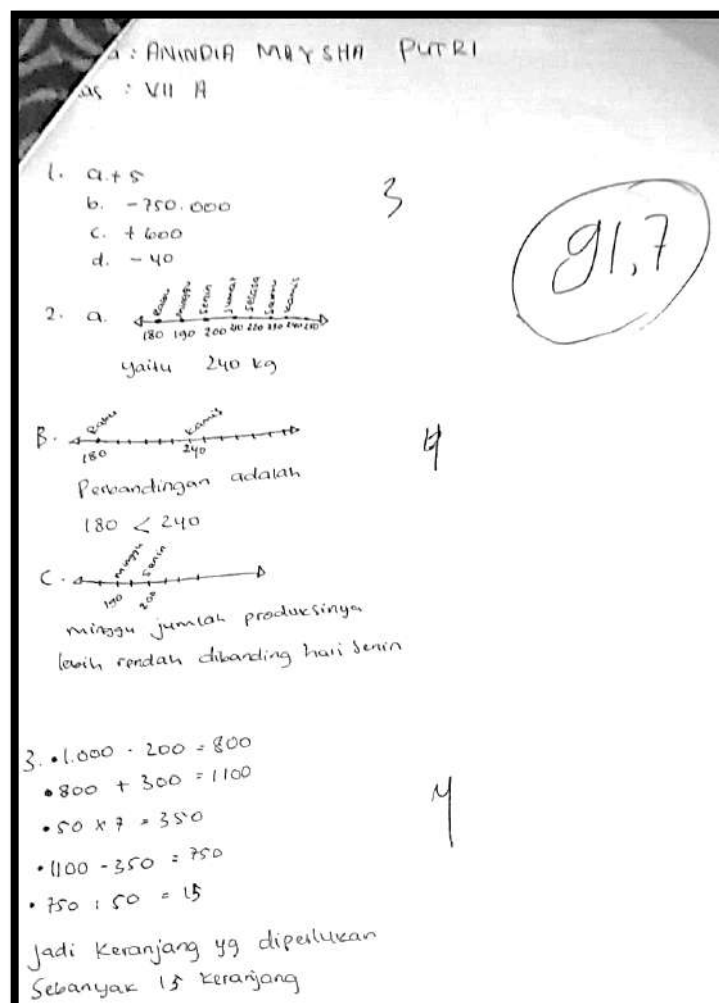 a : ANINDIA MAYSHA PUTRI
as : VII A
1. a. + 5
b. - 750.000
c. + 600
d. - 40
3
91,7
2. a.
Rabu minggu Senin Jumat Selasa Sabtu Kamis
180 190 200 210 220 230 240 250
yaitu 240 kg
B.
Rabu Kamis
180 240
4
Perbandingan adalah
180 < 240
C.
minggu Senin
190 200
minggu jumlah produksinya
lebih rendah dibanding hari Senin
3. • 1.000 - 200 = 800
• 800 + 300 = 1100
• 50 x 7 = 350
4
• 1100 - 350 = 750
• 750 : 50 = 15
Jadi Keranjang yg diperlukan
Sebanyak 15 keranjang